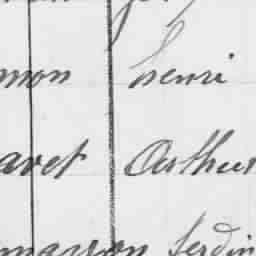 mon Henri
avet Arthur
masson Ferdin